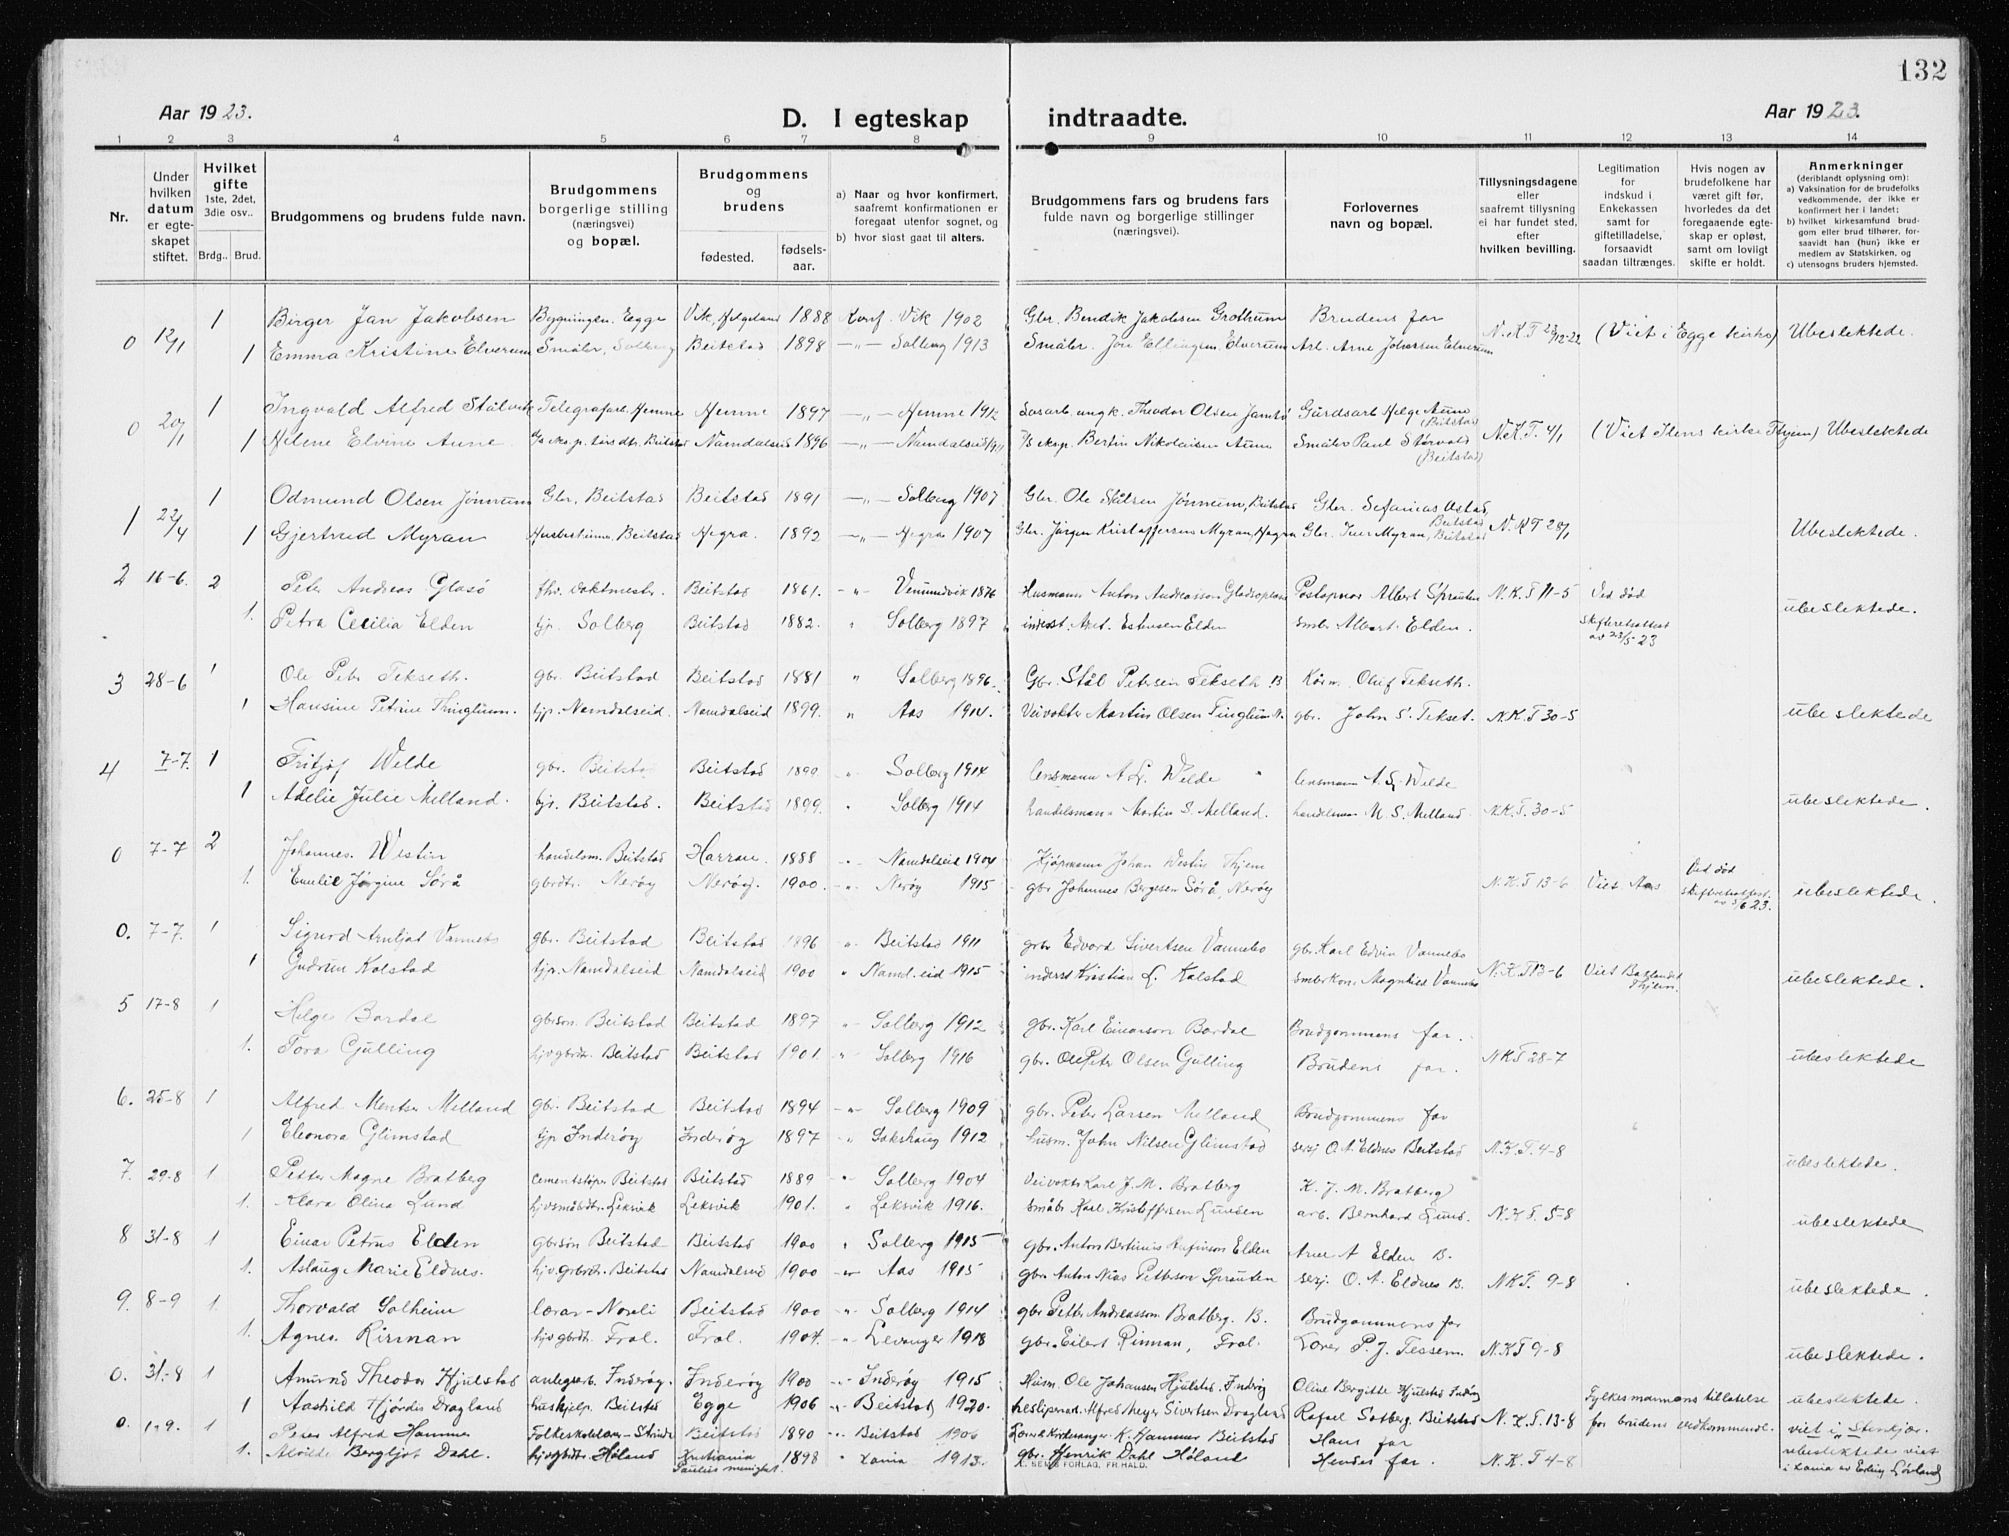 132
Aar 1923. D. I egteskap indtraadte. Aar 1923.
1 2 3 4 5 6 7 8 9 10 11 12 13 14
Nr.
Under hvilken datum er egte-skapet stiftet.
Hvilket gifte 1ste, 2det, 3die osv..
Brdg.. Brud.
Brudgommens og brudens fulde navn.
Brudgommens borgerlige stilling (næringsvei) og bopæl.
Brudgommens og brudens
fødested. fødsels-aar.
a) Naar og hvor konfirmert, saafremt konfirmationen er foregaat utenfor sognet, og
b) hvor sidst gaat til alters.
Brudgommens fars og brudens fars fulde navn og borgerlige stillinger (næringsvei).
Forlovernes navn og bopæl.
Tillysningsdagene eller saafremt tillysning ei har fundet sted, efter hvilken bevilling.
Legitimation for indskud i Enkekassen samt for giftetilladelse, forsaavidt saadan tiltrænges.
Hvis nogen av brudefolkene har været gift før, hvorledes da det foregaaende egte-skap er opløst, samt om lovligt skifte er holdt.
Anmerkninger (deriblandt oplysning om):
a) Vaksination for de brudefolks vedkommende, der ikke er konfirmert her i landet;
b) hvilket kirkesamfund brud-gom eller brud tilhører, for-saavidt han (hun) ikke er medlem av Statskirken, og
c) utensogns bruders hjemsted.
0 12/1 1 Birger Jan Jakobsen Bygningsn. Egge Vik, Helgeland 1888 Konf. Vik 1902 Gbr. Bendik Jakobsen Grotrum Brudens far
1 Emma Kristine Elverum Småbr. Solberg Beitstad 1898 -"- Solberg 1913 Småbr. Jon Ellingsen Elverum Arb. Arne Johansen Elverum N.K.T 23/12-22 (Viet i Egge kirke) Ubeslektede.
0 20/1 1 Ingvald Alfred Stålvik Telegrafarb. Hemne Hemne 1897 -"- Hemne 1912 Theodor Olsen Gårdsarb Helge Aune (Beitstad)
1 Helene Elvine Aune Beitstad Namdalseid 1896 -"- Namdalseid 1911 Bertin Nikolaisen Aune Småbr Paul Størvold (Beitstad) N.K.T. 4/1 (Viet Ilens kirke Thjem) Ubeslektede
1 22/4 1 Odmund Olsen Jønnum Gbr. Beitstad Beitstad 1891 -"- Solberg 1907 Gbr. Ole Stålsen Jønnum, Beitstad Gbr. Sefanias Østad, Beitstad
1 Gjertrud Myran Husbestinne, Beitstad Hegra. 1892 -"- Hegra 1907 Gbr. Jørgen Kristoffersen Myran, Hegra Gbr. Iver Myran, Beitstad N.K.T 28/1 Ubeslektede.
2 16-6. 2 Peter Andreas Glasø fhv. vaktmester. Beitstad 1861. -"- Vemundvik 1876 Husmann Anton Andreassen Postopner Albert Sprauten N.K.T 11-5 Ved død
1. Petra Cecilia Elden hjv. Solberg Beitstad 1882. " Solberg 1897 inderst. Elden smbr Albert Elden. skifteretsattest av 23/5-23 ubeslektede.
3 28-6 1 Ole Peter Tekseth. gbr. Beitstad Beitstad 1881 " Solberg 1896. Gbr. Stål Petersen Tekseth B Kårm. Oluf Tekseth.
1 Hansine Petrine Thinglum. hjp. Namdalseid. Namdalseid 1899. " Aas 1914. Veivokter Martin Olsen Tinglum N. gbr. John S. Tekset. N.K.T 30-5 ubeslektede
4 7-7. 1 Fritjof Welde gbr. Beitstad Beitstad 1899 " Solberg 1914 lensmann A. L. Welde lensmann A. L. Welde
1 Adelie Julie Melland. hjv. Beitstad. Beitstad 1899. " Solberg 1914 handelsmann Martin S. Melland. handelsman M. S. Melland N.K.T. 30-5 ubeslektede.
0 7-7 2 Johannes. Westin handelsm. Beitstad Harran. 1888 " Namdalseid 1904 Kjøpmann Johan Westin Thjem Ved død
1. Emilie Jørgine Sørå gbrdtr. Nerøy Nerøy. 1900. " Nerøy 1915 gbr Johannes Bergesen Sørå, Nerøy N.K.T 13-6 Viet Aas skifteretsattest. av 5/6 23. ubeslektede.
0. 7-7. 1 Sigurd Arnljot Vannebo gbr. Beitstad Beitstad 1896 " Beitstad 1911 gbr Edvard Sivertsen Vannebo gbr. Karl Edvin Vannebo
1 Gudrun Kolstad hjp. Namdalseid Namdalseid 1900 " Namd.eid 1915 inderst Kristian L. Kolstad smbrkone Magnhild Vannebo N.K.T 13-6 Viet Baklandet Thjem. ubeslektede.
5 17-8 1 Helge Bardal gbrsøn. Beitstad Beitstad 1897 " Solberg 1912 gbr. Karl Einarson Bardal Brudgommens far.
1. Tora Gulling hjvgbrdtr. Beitstad Beitstad 1901. " Solberg 1916 gbr. Ole Peter Olsen Gulling Brudens far. N.K.T 28-7 ubeslektede
6. 25-8 1 Alfred Mentser Melland gbr. Beitstad Beitstad 1894 -"- Solberg 1909 gbr. Peter Larsen Melland Brudgommens far
1 Eleonora Glimstad hjp Inderøy Inderøy 1897 " Sakshaug 1912 husm. John Nilsen Glimstad sersj O. A. Eldnes Beitstad N.K.T. 4-8 ubeslektede.
7. 29-8 1 Petter Magne Bratberg cementstøper Beitstad Beitstad 1889 " Solberg 1904 Veivokter Karl J. M. Bratberg K. J. M. Bratberg
1. Klara Olina Lund hjvsmåbdtr. Leksvik Leksvik 1901. " Leksvik 1916. småbr Karl Kristoffersen Lunden arb. Bernhard Lund. N.K.T. 5-8 ubeslektede
8 31-8 1 Einar Petrus Elden gbrsøn Beitstad Beitstad 1900 " Solberg 1915 gbr. Anton Bertinus Elden Arne A Elden B.
1. Aslaug Marie Eldnes. hjv. gbrdtr. Beitstad Namdalseid 1900 " Aas 1915 gbr. Anton Petterson Sprauten sersj. O. A. Eldnes B. N.K.T. 9-8 ubeslektede.
9. 8-9 1. Thorvald Solheim lærer - Nordli Beitstad 1900 " Solberg 1914 gbr Petter Andreassen Bratberg. B. Brudgommens far
1. Agnes Rinnan hjvgbrdtr. Frol. Frol. 1904. " Levanger 1918 gbr. Eilert Rinnan, Frol. Lærer P. J. Tessem. N.K.T 9-8 ubeslektede.
0. 31-8 1 Amund Theodor Hjulstad anlegsarb. Inderøy. Inderøy 1900 " Inderøy 1915 Husm. Ole Johansen Hjulstad, Inderøy Oline Bergitte Hjulstad Inderøy Fylkesmannens tillatelse ubeslektede.
1 Aashild Hjørdis Dragland hushjelp. Beitstad Egge 1906 " Beitstad 1920. Alfred Meyer Sivertsen Dragland Rafael Solberg. Beitstad N.K.T. 13-8 for brudens vedkommende. viet i Stenkjær.
0. 1-9. 1 Peter Alfred Hammer Folkeskolelærer - Strinda Beitstad 1890 " Beitstad 1906 Lærer & Kirkesanger K. Hammer Beitstad Hans far ubeslektede viet
1. Alvilde Bergljot Dahl. hjvgbrdtr. Høland Kristiania Paulus menighet. 1898 " Xania 1913. gbr. Henrik Dahl Høland Hendes far. N.K.T 4-8 i Xania av Erling Grønland
SEMS FORLAG, FR.HALD.